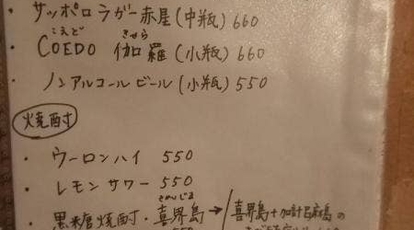 ・ サッポロラガー赤星(中瓶) 660
こえど きゃら
・ COEDO 伽羅 (小瓶) 660
・ ノンアルコールビール(小瓶) 550
焼酎
・ ウーロンハイ 550
・ レモンサワー 550
きかいじま
・ 黒糖焼酎・喜界島 → 喜界島+加計呂麻島の